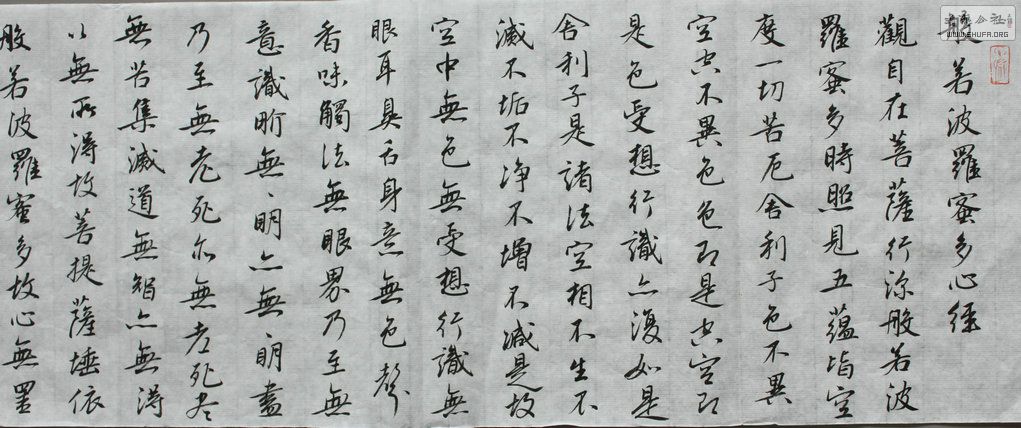 般若波羅蜜多心経
觀自在菩薩行深般若波
羅蜜多時照見五蘊皆空
度一切苦厄舍利子色不異
空空不異色色即是空空即
是色受想行識亦復如是
舍利子是諸法空相不生不
滅不垢不净不增不減是故
空中無色無受想行識無
眼耳鼻舌身意無色聲
香味觸法無眼界乃至無
意識界無、明亦無、明盡
乃至無老死亦無老死尽
無苦集滅道無智亦無得
以無所得故菩提薩埵依
般若波羅蜜多故心無罣
WWW.SHUFA.ORG